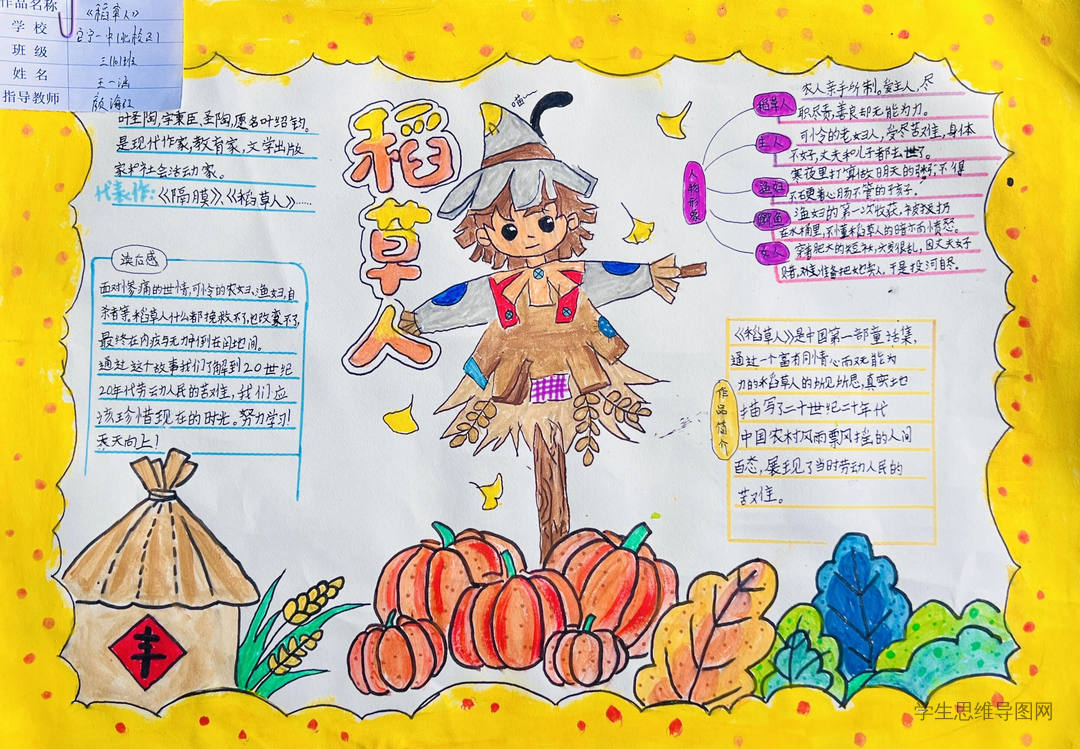 作品名称 《稻草人》
学校
班级 三(10)班
姓名 王一涵
指导教师 顾渝红
叶圣陶,字秉臣、圣陶,原名叶绍钧。
是现代作家,教育家,文学出版
家和社会活动家。
代表作:《隔膜》、《稻草人》……
读后感
面对惨痛的世情,可怜的农妇、渔妇,自
杀者等,稻草人什么都挽救不了,也改变不了,
最终在内疚与无力中倒在田地间。
通过这个故事我们了解到20世纪
20年代劳动人民的苦难,我们应
该珍惜现在的时光。努力学习!
天天向上!
稻草人
喵~
人物形象
稻草人
农人亲手所制。爱主人,尽
职尽责,善良却无能为力。
主人
可怜的老妇人,受尽苦难,身体
不好,丈夫和儿子都去世了。
渔妇
寒夜里打算做明天的粥,不得
不硬着心肠不管的孩子。
鲫鱼
渔妇的第一次收获,被扔
在水桶里,不懂稻草人的暗示而愤怒。
女人
因丈夫好
赌,准备把她卖人,于是投河自尽。
作品简介
《稻草人》是中国第一部童话集,
通过一个富有同情心而又无能为
力的稻草人的所见所思,真实地
描写了二十世纪二十年代
中国农村风雨飘摇的人间
百态,展现了当时劳动人民的
苦难。
丰
学生思维导图网